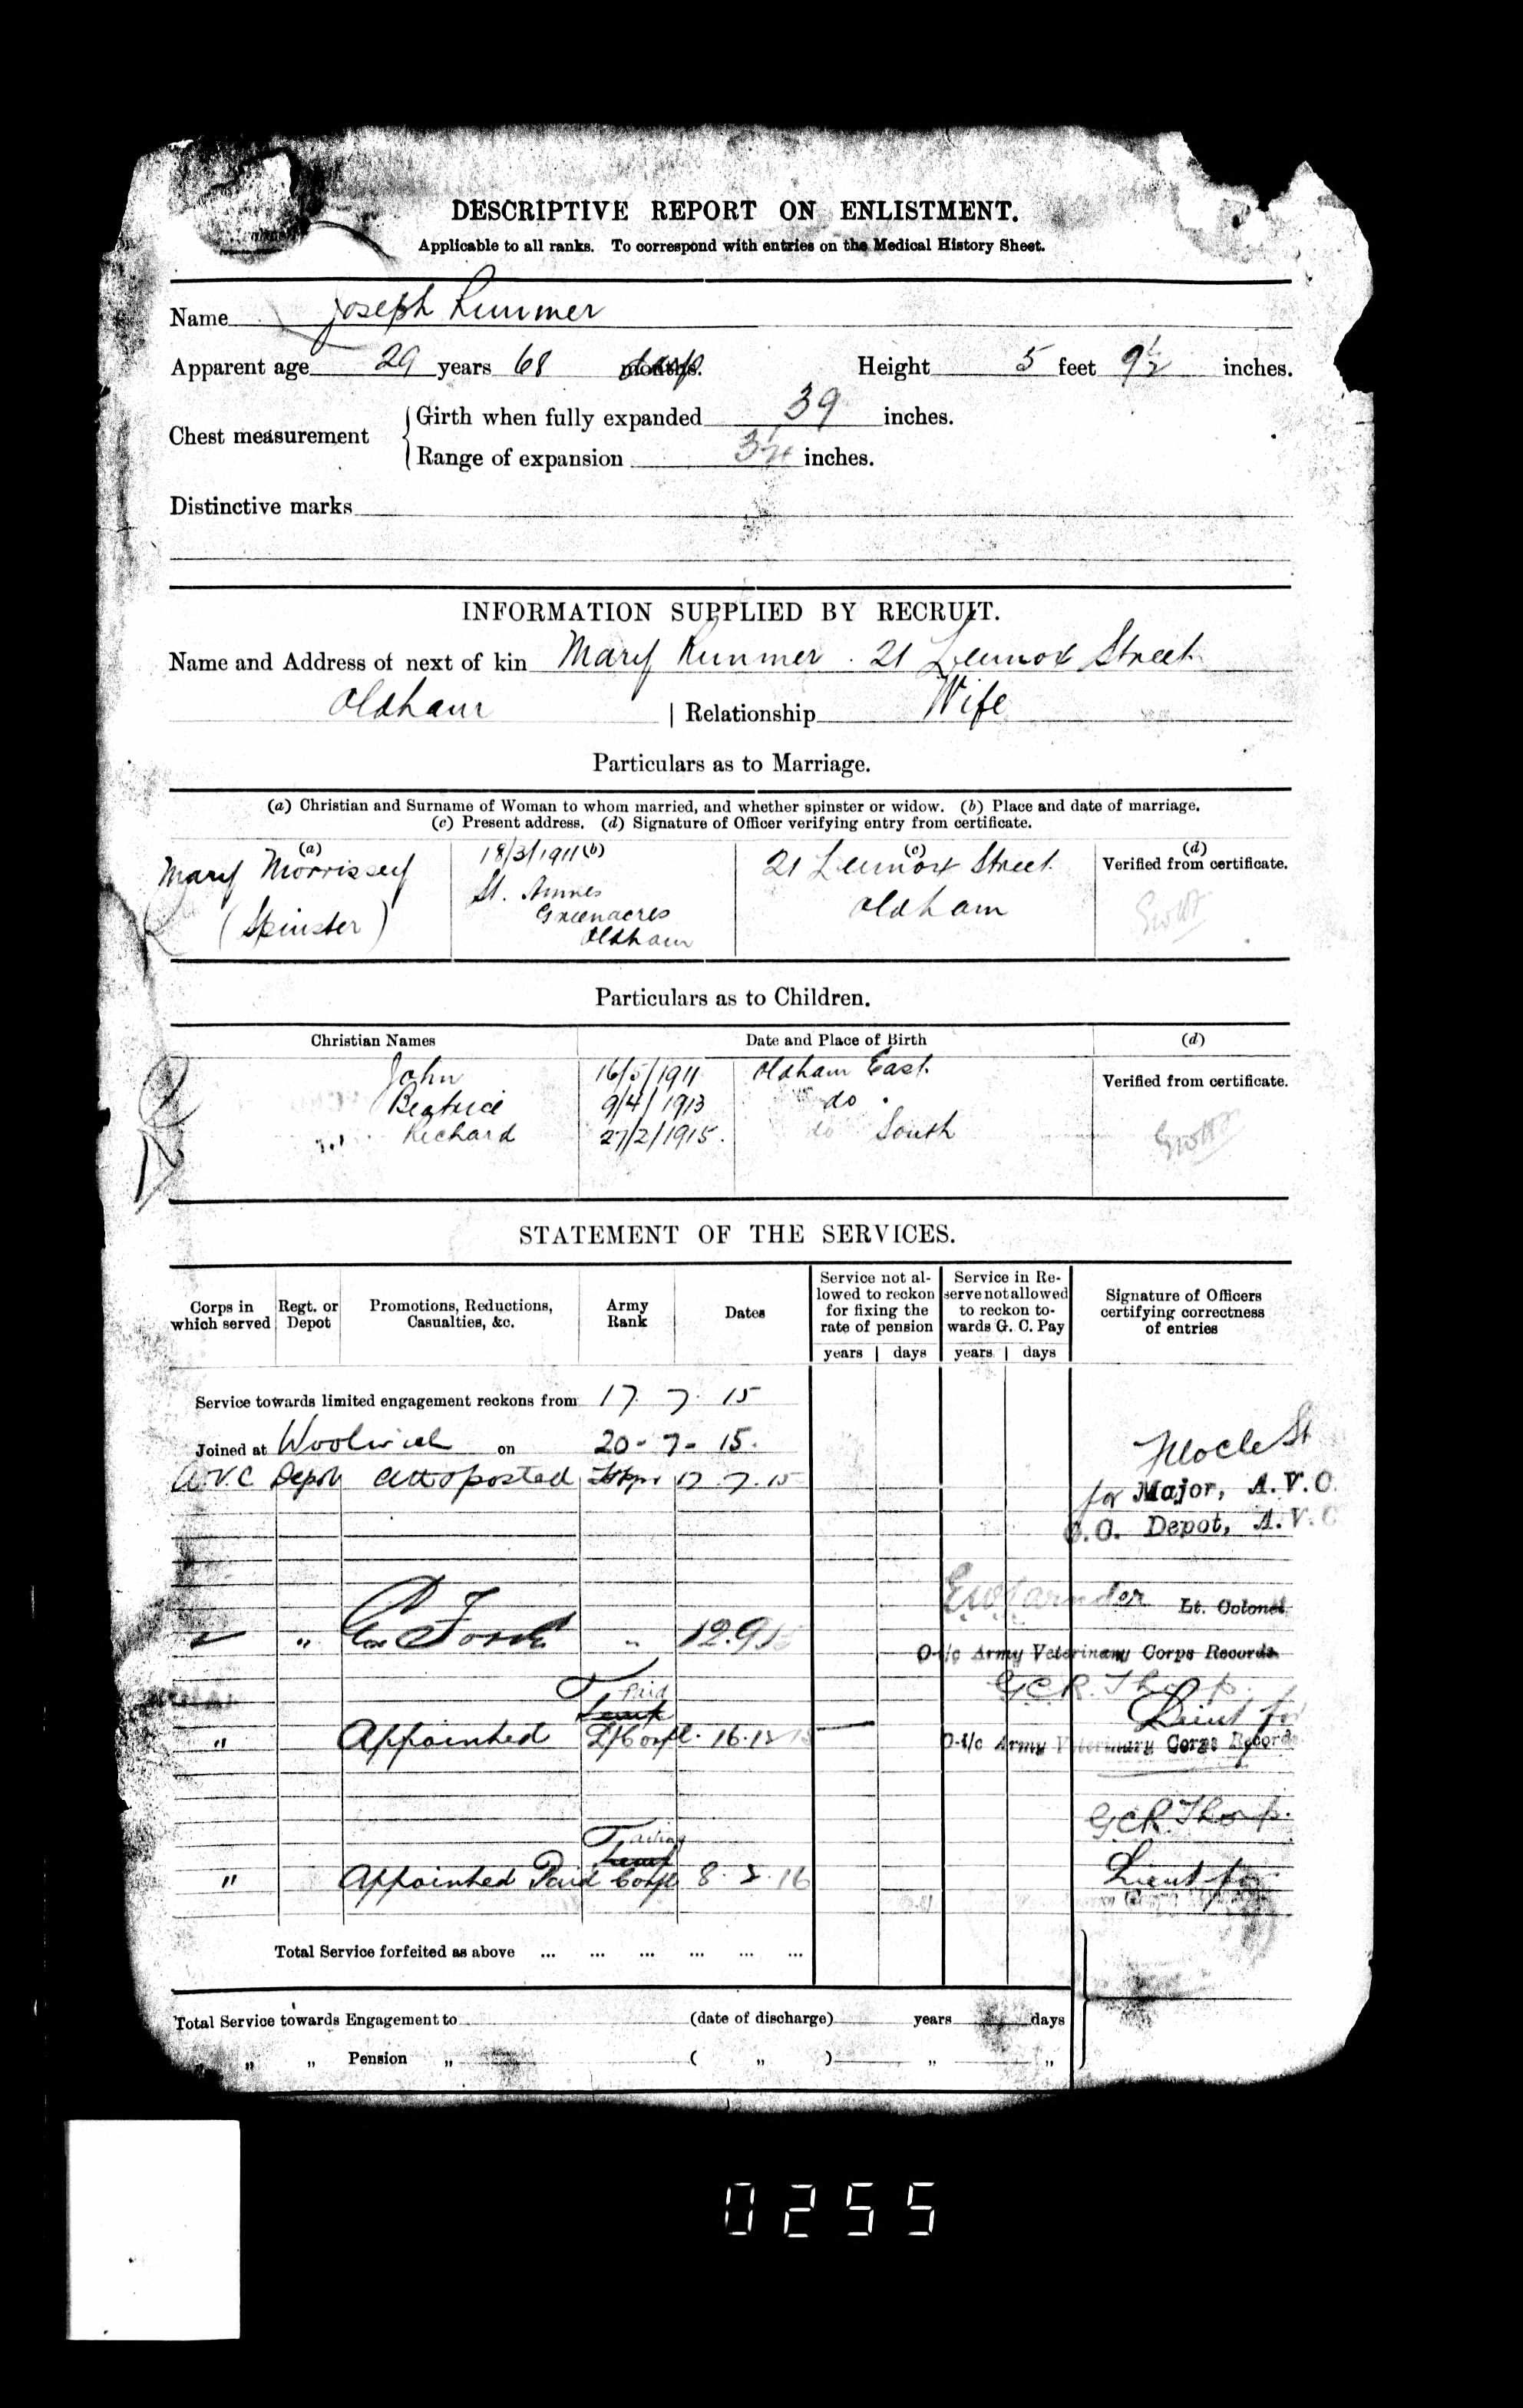 DESCRIPTIVE REPORT ON ENLISTMENT.
Applicable to all ranks. To correspond with entries on the Medical History Sheet.
Name Joseph
Apparent age 29 years 68 days. Height 5 feet 9½ inches.
Chest measurement
Girth when fully expanded 39 inches.
Range of expansion inches.
Distinctive marks
INFORMATION SUPPLIED BY RECRUIT.
Name and Address of next of kin Mary 21 Lennox Street
Oldham | Relationship Wife
Particulars as to Marriage.
(a) Christian and Surname of Woman to whom married, and whether spinster or widow. (b) Place and date of marriage.
(c) Present address. (d) Signature of Officer verifying entry from certificate.
(a) (b) (c) (d)
Mary Morrissey 18/3/1911 21 Lennox Street Verified from certificate.
(Spinster) St. Annes Oldham
Greenacres
Oldham
Particulars as to Children.
Christian Names Date and Place of Birth (d)
John 16/5/1911 Oldham East Verified from certificate.
Beatrice 9/4/1913 " do .
Richard 27/2/1915. do South
STATEMENT OF THE SERVICES.
Corps in which served Regt. or Depot Promotions, Reductions, Casualties, &c. Army Rank Dates Service not allowed to reckon for fixing the rate of pension Service in Reserve not allowed to reckon towards G. C. Pay Signature of Officers certifying correctness of entries
years days years days
Service towards limited engagement reckons from 17. 7. 15
Joined at Woolwich on 20 - 7 - 15.
A.V.C Depot posted 17. 7. 15
for Major, A.V.C.
O.O. Depot, A.V.C
Lt. Colonel
" " 12.9.15
O-i/c Army Veterinary Corps Records
G.C.R. Thorp.
Paid
Lieut for
" Appointed L/Corpl. 16.12.15 O-i/c Army Veterinary Corps Records
G.C.R. Thorp.
Acting
" Appointed Paid Corpl 8. 2. 16 Lieut for
Total Service forfeited as above ... ... ... ... ... ...
Total Service towards Engagement to (date of discharge) years days
" " " Pension " ( " ) " "
0255